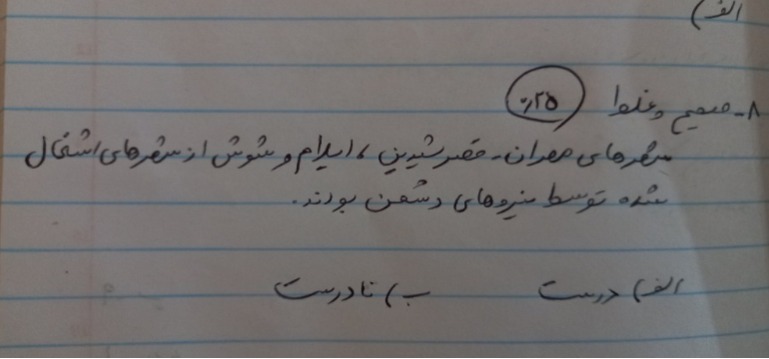 الف)
۸- صحیح و غلط ۰/۲۵
شهرهای مهران - قصرشیرین، ایلام و شوش از شهرهای اشغال
شده توسط نیروهای دشمن بودند.
الف) درست ب) نادرست